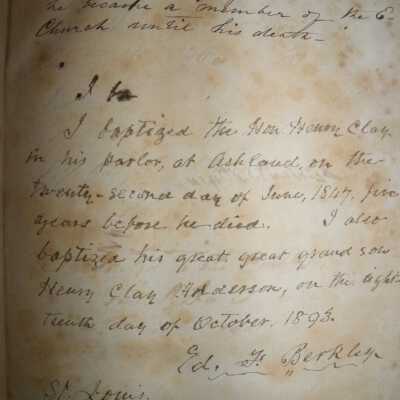 he became a member of the E-
Church until his death-
I
I baptized the Hon. Henry Clay
in his parlor, at Ashland, on the
twenty-second day of June, 1847, five
years before he died. I also
baptized his great, great grand son
Henry Clay Anderson, on the eigh-
teenth day of October, 1893.
Ed. F. Berkley
St. Louis,